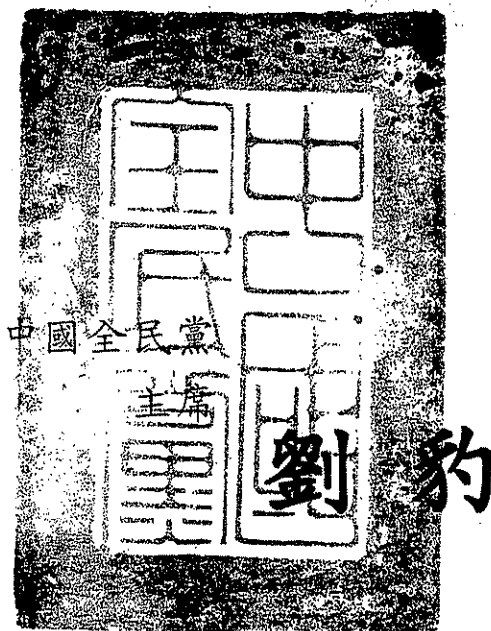 中國
全民黨
中國全民黨
主席
劉豹